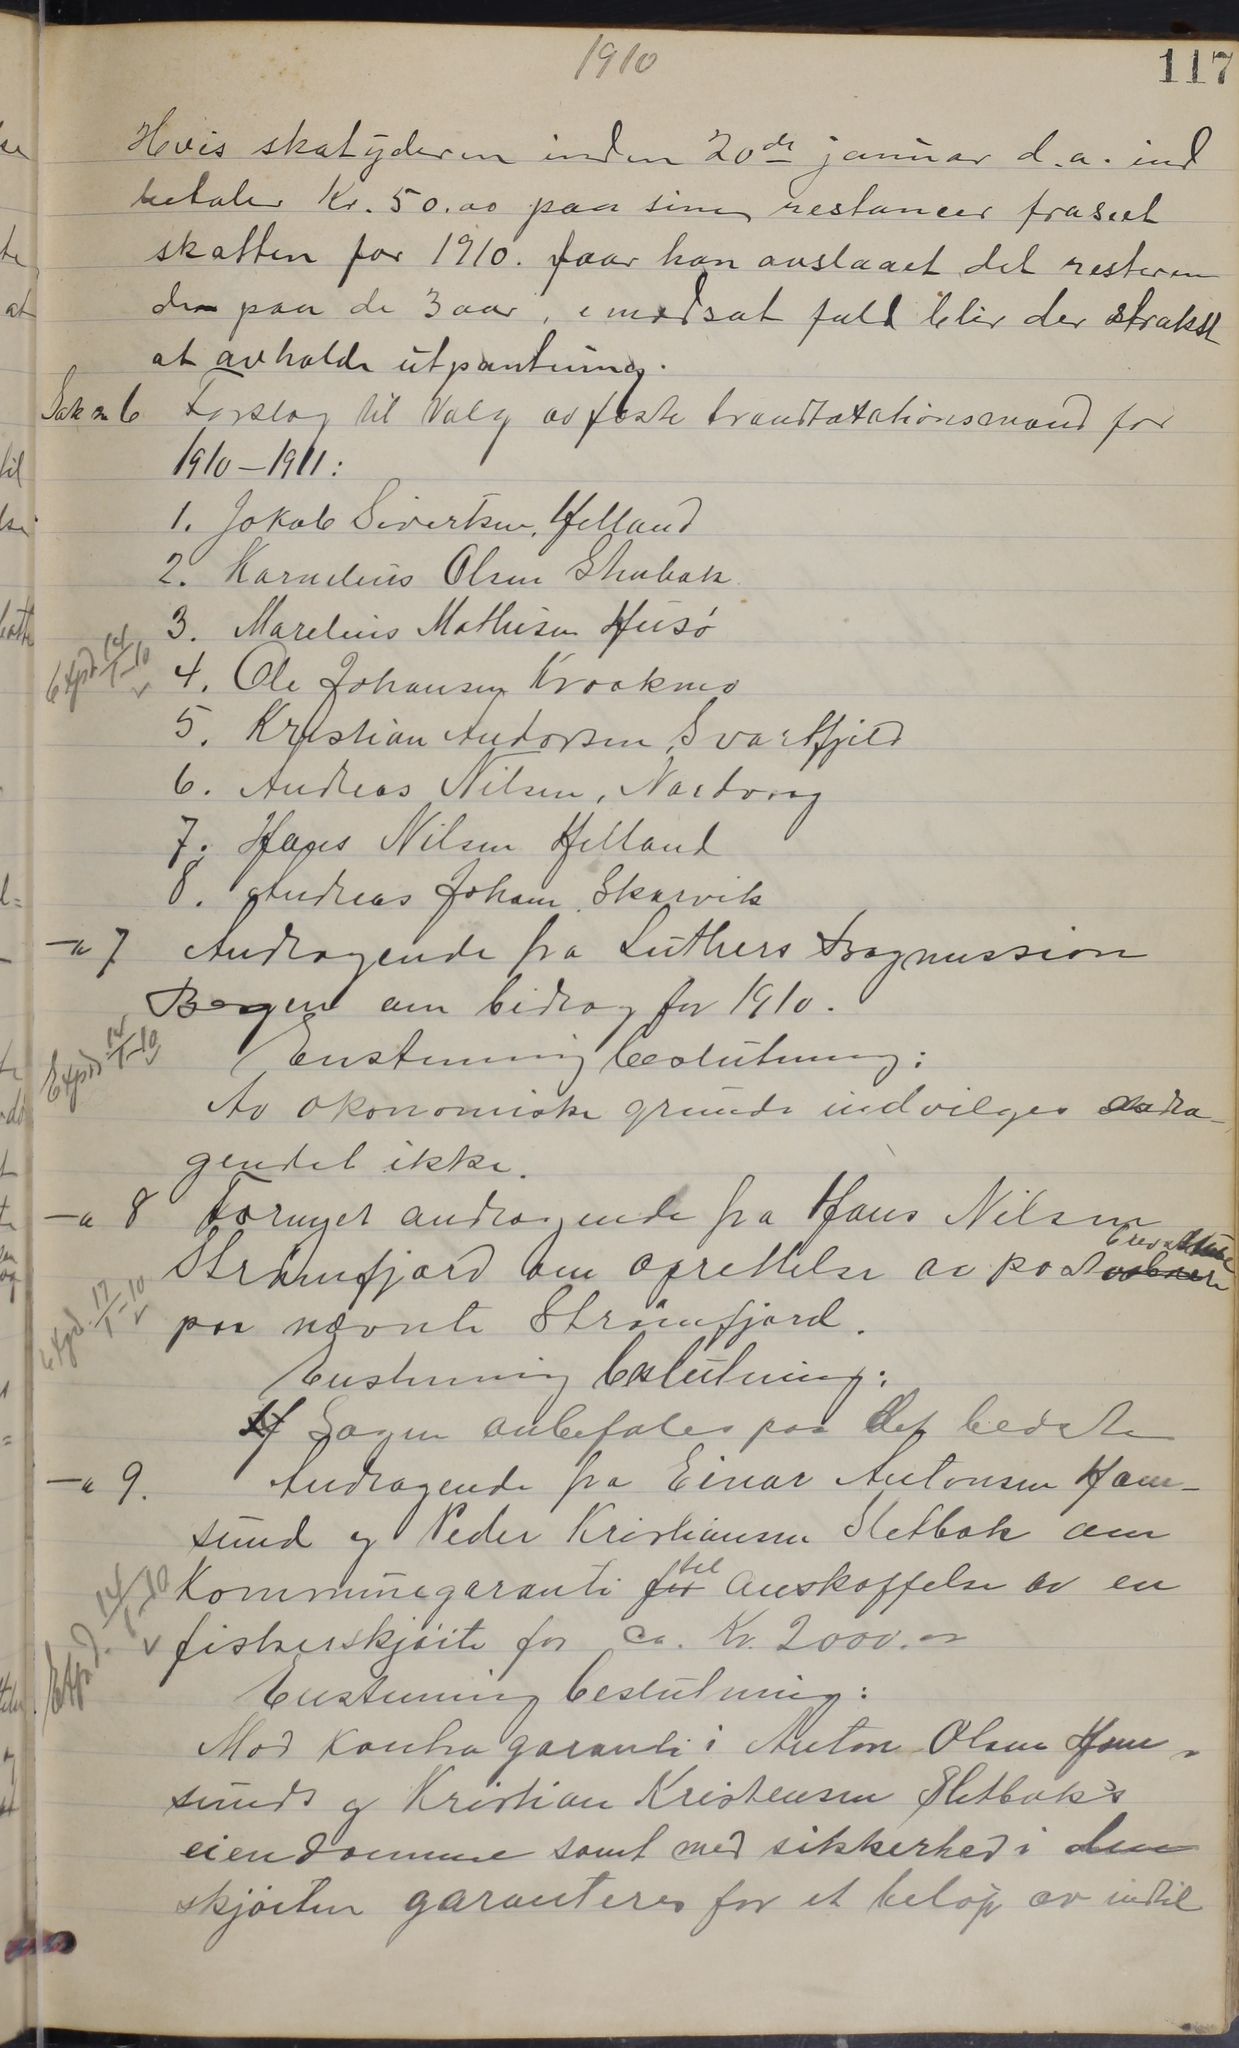 1910
117
Hvis skatyderen inden 20de januar d.a. ind
betaler Kr. 50.00 paa sine restancer fraseet
skatten for 1910. faar han avslaaet det resteren
de paa de 3 aar, i modsat fald blir der strakst
at avholde utpantning.
Sak nr 6 Forslag til Valg av faste brandtakstionsmænd for
1910-1911:
1. Jokab Sivertsen, Helland
2. Karnelius Olsen Skubak
3. Marelius Mathisen Husö
Expd 14/1-10
4. Ole Johansen Kraakmo
5. Kristian Andorsen, Svartfjeld
6. Andreas Nilsen, Nordvaag
7. Hans Nilsen Helland
8. Andreas Johan, Skarvik
—" 7 Andragende fra Luthers Bogmission
Bergen om bidrag for 1910.
Expd 14/1-10
Enstemmig beslutning:
Av økonomiske grunde indvilges andra-
gendet ikke.
—" 8 Fornyet andragende fra Hans Nilsen
Strömfjord om oprettelse av post
paa nævnte Strömfjord.
Expd. 17/1-10
Enstemmig beslutning:
Sagen anbefales paa det bedste
—" 9. Andragende fra Einar Antonsen Ham-
sund og Peder Kristiansen Sletbak om
Kommunegaranti for til anskaffelse av en
Expd. 14/1-10
fiskerskjöite for ca. Kr. 2000.00
Enstemmig beslutning:
Mod kontragaranti i Anton Olsen Ham-
sunds og Kristian Kristensen Sletbak's
eiendomme samt med sikkerhed i den
skjöiten garanteres for et belöp av indtil